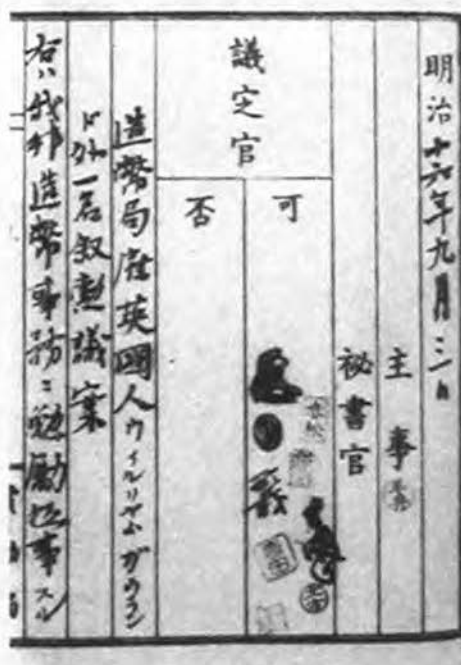 明治十六年九月三日
主事
祕書官
議定官
可
否
造幣局雇英國人ウイルリヤムガウラン
ド外一名叙勲議案
右ハ我邦造幣事務ニ勉勵從事スル